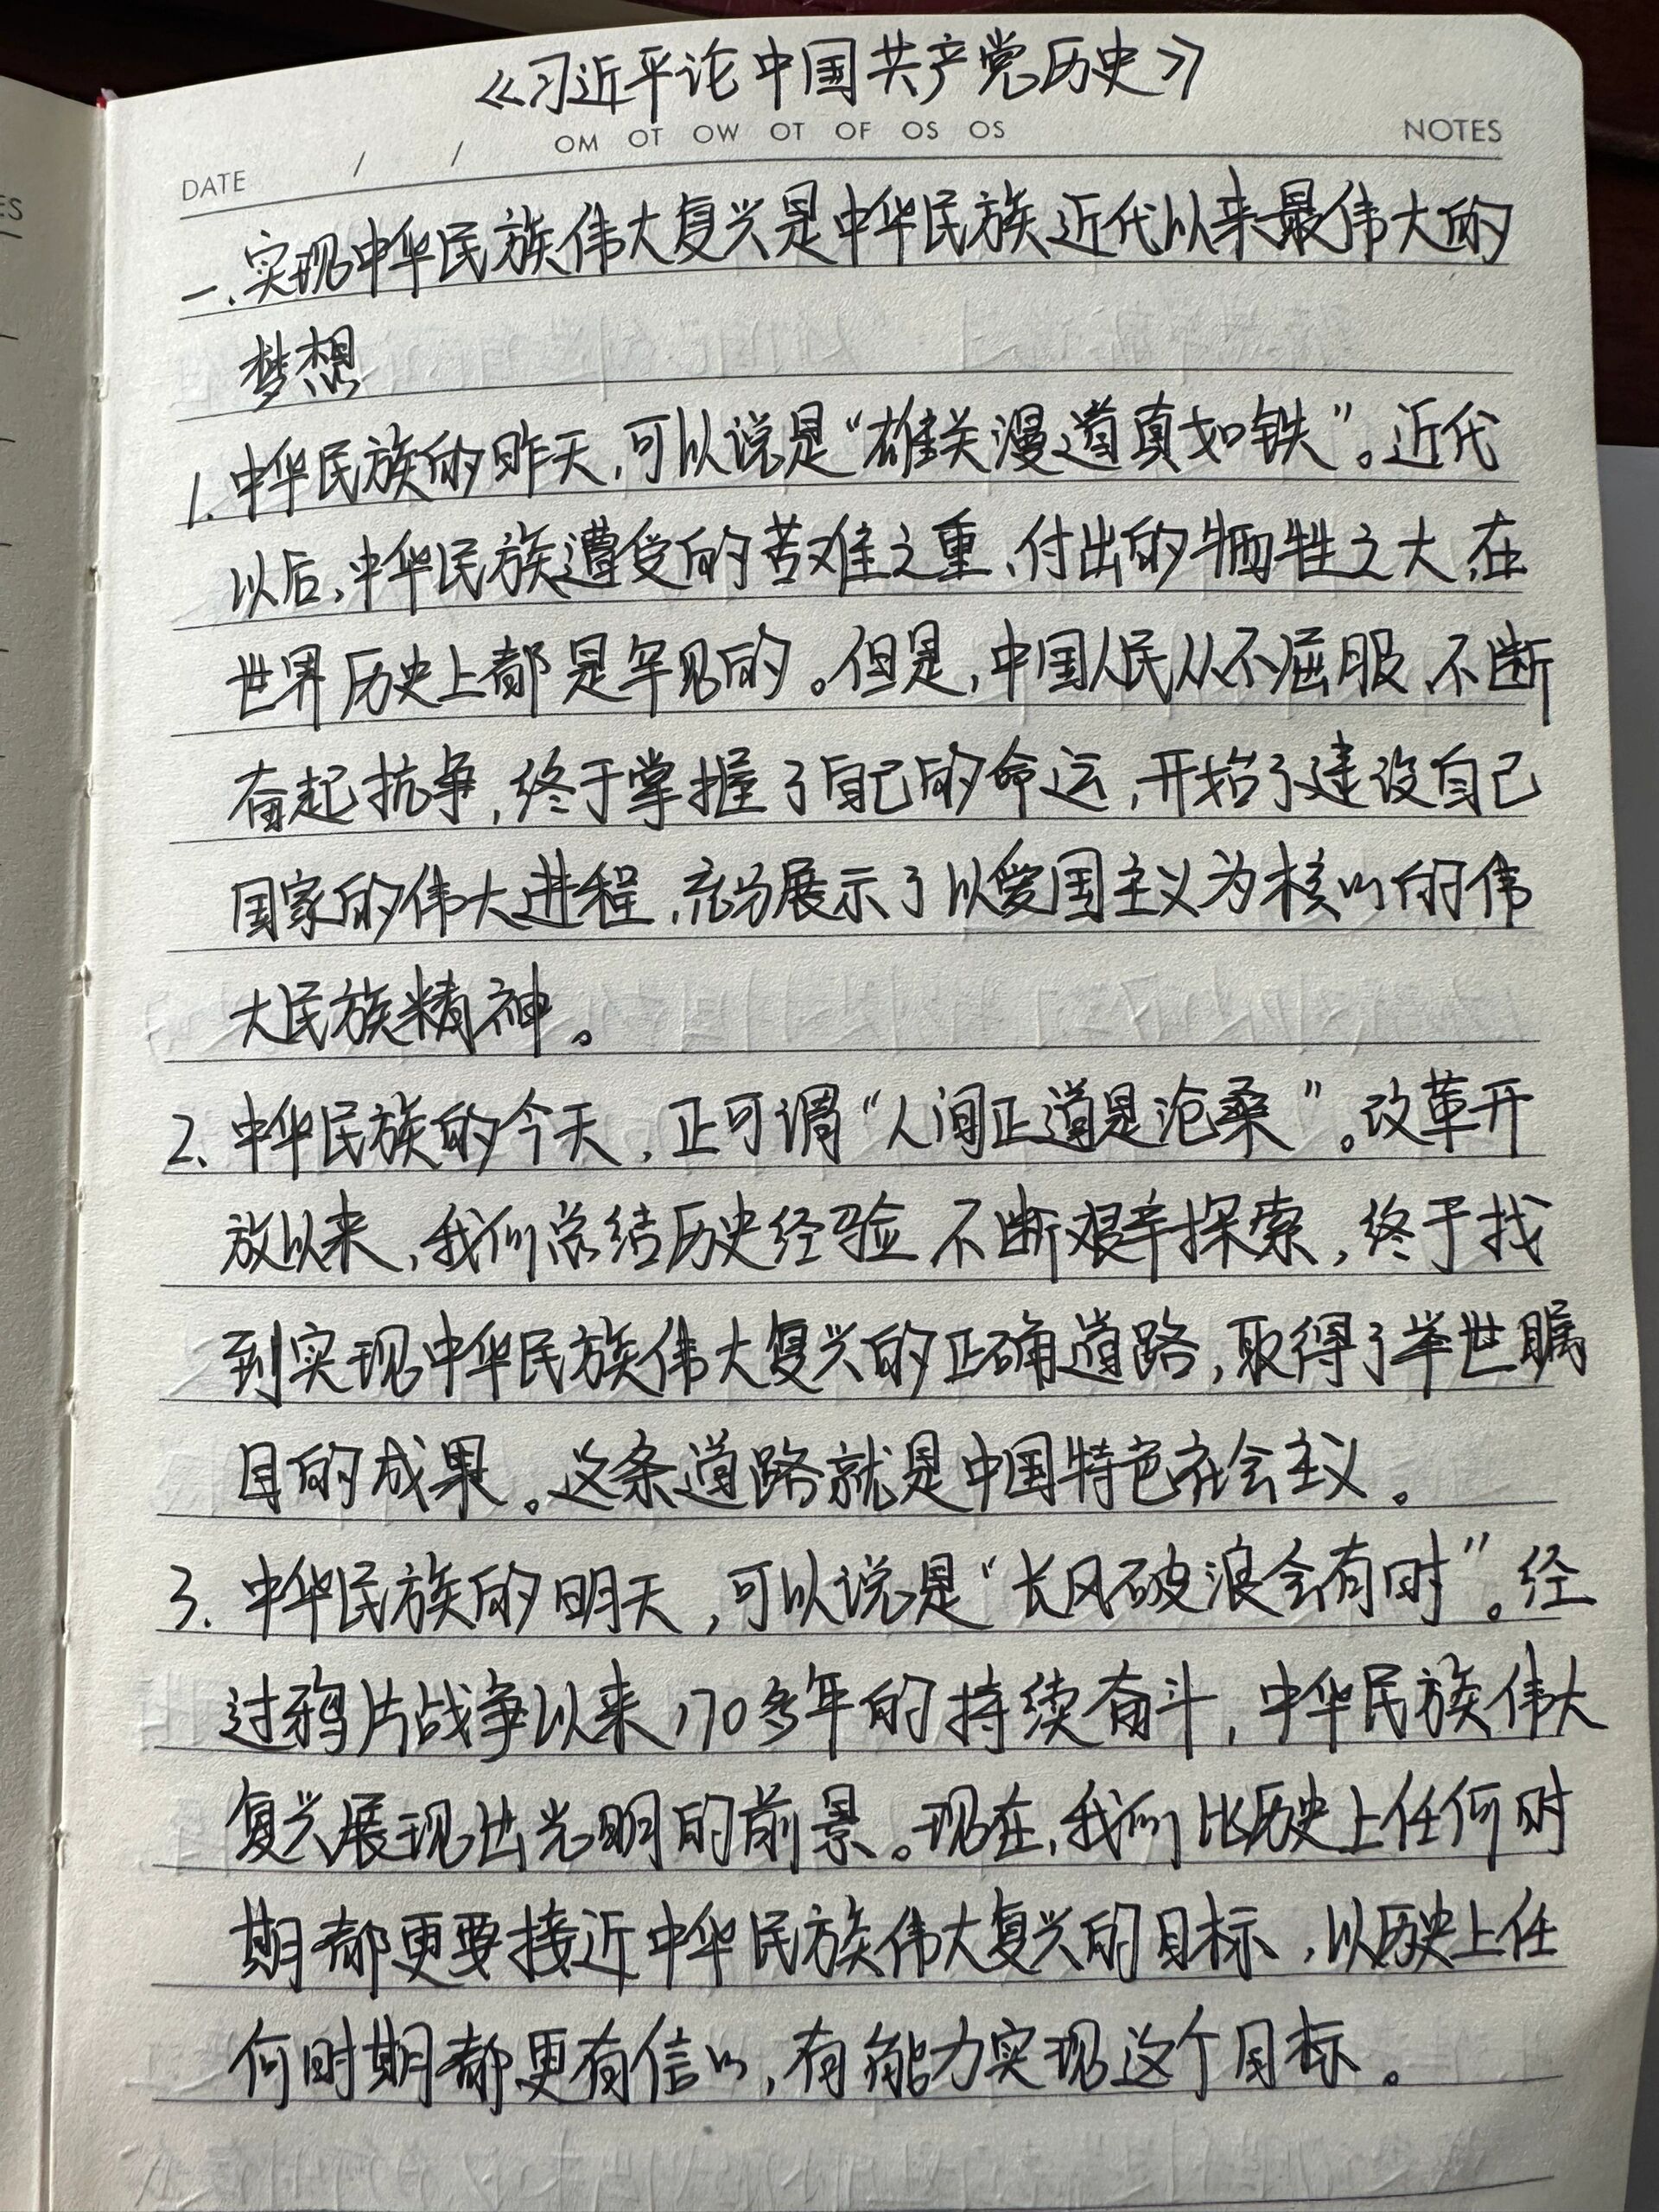 《习近平论中国共产党历史》
OM OT OW OT OF OS OS
NOTES
DATE / /
ES
一、实现中华民族伟大复兴是中华民族近代以来最伟大的
梦想
1. 中华民族的昨天,可以说是“雄关漫道真如铁”。近代
以后,中华民族遭受的苦难之重、付出的牺牲之大,在
世界历史上都是罕见的。但是,中国人民从不屈服,不断
奋起抗争,终于掌握了自己的命运,开始了建设自己
国家的伟大进程,充分展示了以爱国主义为核心的伟
大民族精神。
2. 中华民族的今天,正可谓“人间正道是沧桑”。改革开
放以来,我们总结历史经验 不断艰辛探索,终于找
到实现中华民族伟大复兴的正确道路,取得了举世瞩
目的成果。这条道路就是中国特色社会主义。
3. 中华民族的明天,可以说是“长风破浪会有时”。经
过鸦片战争以来170多年的持续奋斗,中华民族伟大
复兴展现出光明的前景。现在,我们比历史上任何时
期都更要接近中华民族伟大复兴的目标,以历史上任
何时期都更有信心,有能力实现这个目标。